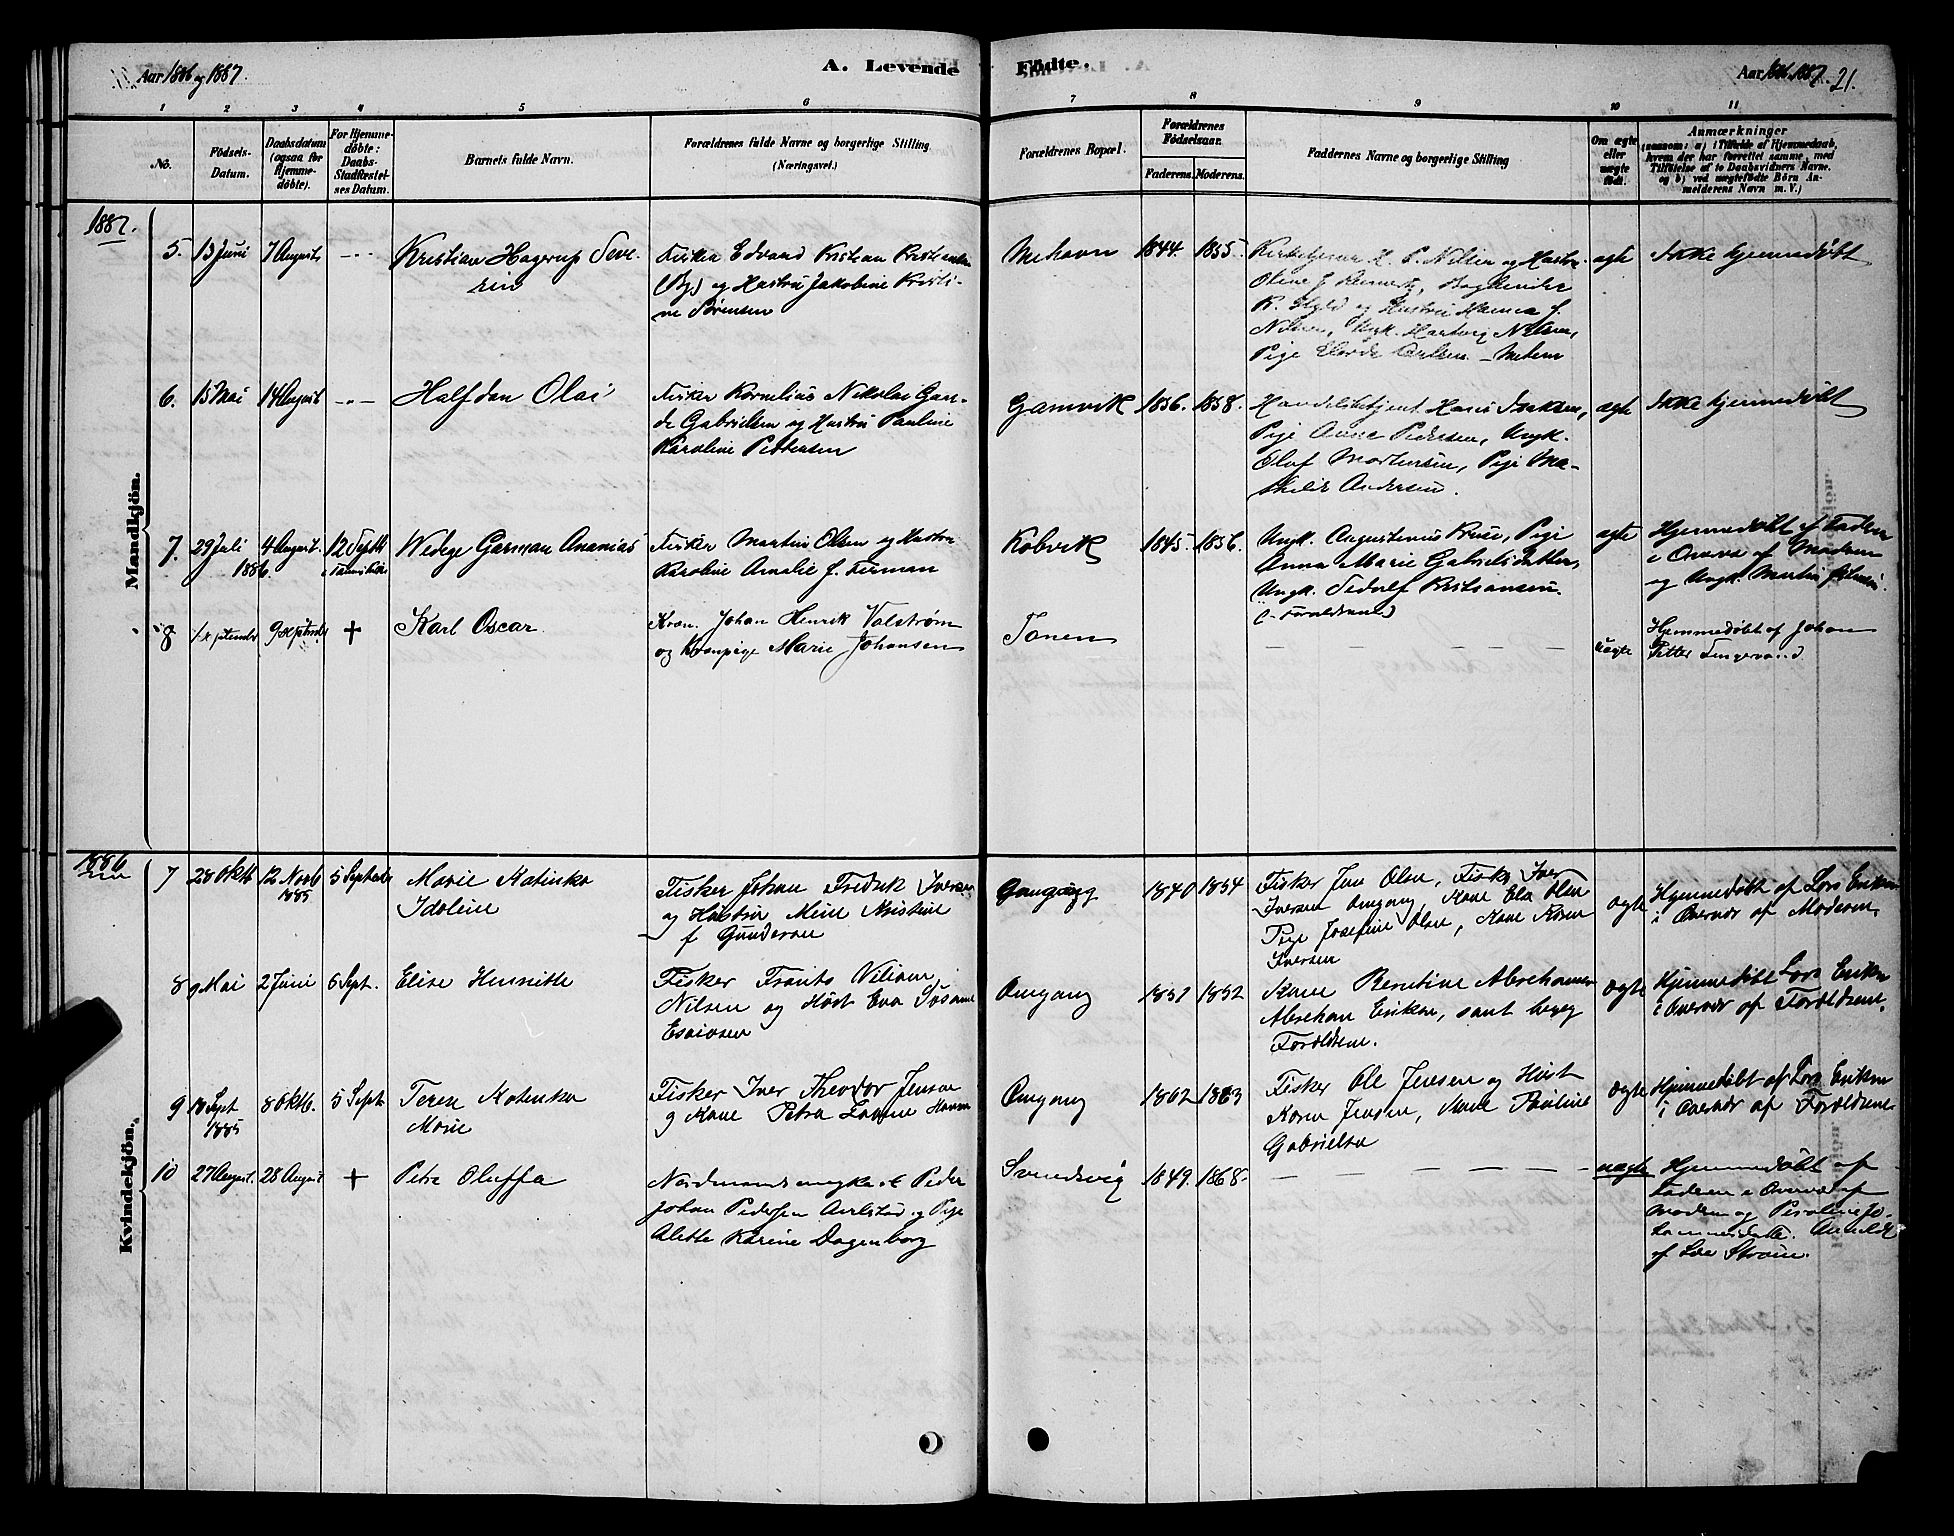 Aar 1886 og 1887.
A. Levende
Fødte.
Aar 1886. 1887. 21.
1 2 3 4 5 6 7 8 9 10 11
No.
Fødsels-
Datum.
Daabsdatum
(ogsaa for
Hjemme-
døbte).
For Hjemme-
døbte:
Daabs-
Stadfæstel-
ses Datum.
Barnets fulde Navn.
Forældrenes fulde Navne og borgerlige Stilling
(Næringsvei.)
Forældrenes Bopæl.
Forældrenes
Fødselsaar.
Faderens. Moderens.
Faddernes Navne og borgerlige Stilling
Om ægte
eller
uægte
født.
Anmærkninger
(saasom: a) i Tilfælde af Hjemmedaab,
hvem der har forrettet samme, med
Tilføielse af to Daabsvidners Navne.
og b) ved uægtefødte Børn An-
melderens Navn m. V.)
1887.
Mandkjön.
5. 13 Juni 7 August - - - Kristian Hagerup Seve-
rin
Fisker Edvard Kristian Kristiansen
(By) og Hustru Jakobine Kristi-
ne Sørensen
Mehavn 1844. 1855.
Kirketjener H. P. Nilsen og Hustru
Oline J.
K. og Hustru Hanna J.
Nilsen, Ungk. Hartvig Nilsen,
Pige Carlsen - Mehavn
ægte Ikke hjemmedøbt
6. 15 Mai 14 August - - - Halfdan Olai
Fisker Kornelius Nikolai Gan-
de Gabrielsen og Hustru Pauline
Karoline Pettersen
Gamvik 1856. 1858.
Handelsbetjent Hans Isaksen,
Pige Anne Pedersen, Ungk.
Olaf Mortensen, Pige Ma-
thilde Andersen.
ægte Ikke hjemmedøbt
7. 29 Juli 4 August. 12 Septbr
1886.
Wedege Garman Ananias
Fisker Martin Olsen og Hustru
Karoline Amalie f. Furman
Kobvik 1845. 1856.
Ungk. Augustinus Kruse, Pige
Anna Marie Gabrielsdatter,
Ungk. Sedolf Kristiansen.
(- Forældrene)
ægte Hjemmedøbt af Faderen
i Overvær af Moderen
og Ungk. Martin
8 1 September 9 September + Karl Oscar
Kvæn. Johan Henrik Valstrøm
og Kvænpige Marie Johansen
Tanen
— — — — — —
uægte
Hjemmedøbt af Johan
Petter Tengevand
1886
Kvindekjön.
7 28 Oktb 12 Novb 5 Septbr
1885
Marie Katinka
Idoline
Fisker Johan Fredrik Iversen
og Hustru, Mine Kristine
f Gundersen
Omgang 1840 1854
Fisker Jens Olsen, Fisker Iver
Iversen Omgang, Kone Ela Olsen
Pige Josefine Olsen, Kone Karen
Iversen
ægte Hjemmedøbt af Lars Eriksen
i Overvær af Moderen
8 9 Mai 2 Juni 6 Sept. Elise Henriette
Fisker Frants Viliam
Nilsen og Hust Eva Susanne
Esaiasen
Omgang 1851 1852
Kone Berntine Abrahamsen
Abraham Eriksen, samt begge
Forældrene.
ægte Hjemmedøbt Lars Eriksen
i Overvær af Forældrene.
9 10 Sept 8 Oktb. 5 Sept
1885
Teren Katinka
Marie
Fisker Iver Theodor Jensen
og Kone Petra Lovine Hansen
Omgang 1862 1863
Fisker Ole Jensen og Hust
Karen Jensen, Marie Pauline
Gabrielsen
ægte Hjemmedøbt af Lars Eriksen
i Overvær af Forældrene
10 27 August. 28 August + Petra Oluffa
Nordmandsungkarl Peder
Johan Pedersen Aarlstad og Pige
Alette Karine Dagenborg
Svendsvig 1849. 1868.
— — — — — —
uægte Hjemmedøbt af
Faderen i Overvær af
Moderen og Peroline Jo-
hannesdatter. Anmeldt
af Lars Strøm.